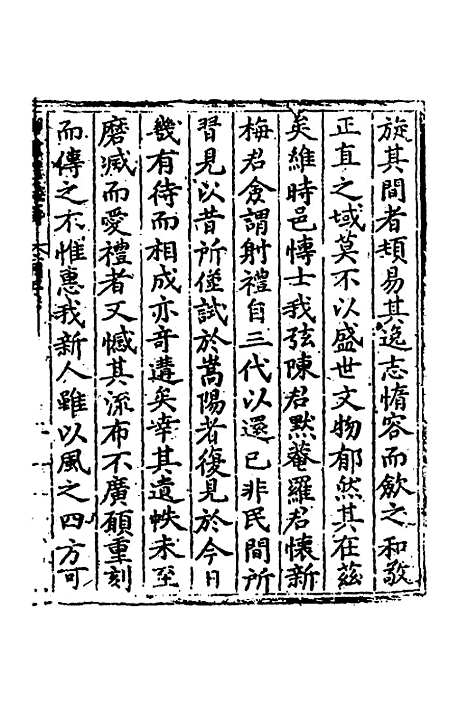 旋其間者頻易其逸志惰容而飲之和敬
正直之域莫不以盛世文物郁然其在茲
矣維時邑博士我弦陳君默菴羅君懐新
梅君僉謂射禮自三代以還已非民間所
習見以昔所僅試於嵩陽者復見於今日
幾有待而相成亦奇遘矣幸其遺帙未至
磨滅而愛禮者又憾其流布不廣願重刻
而傳之不惟惠我新人雖以風之四方可